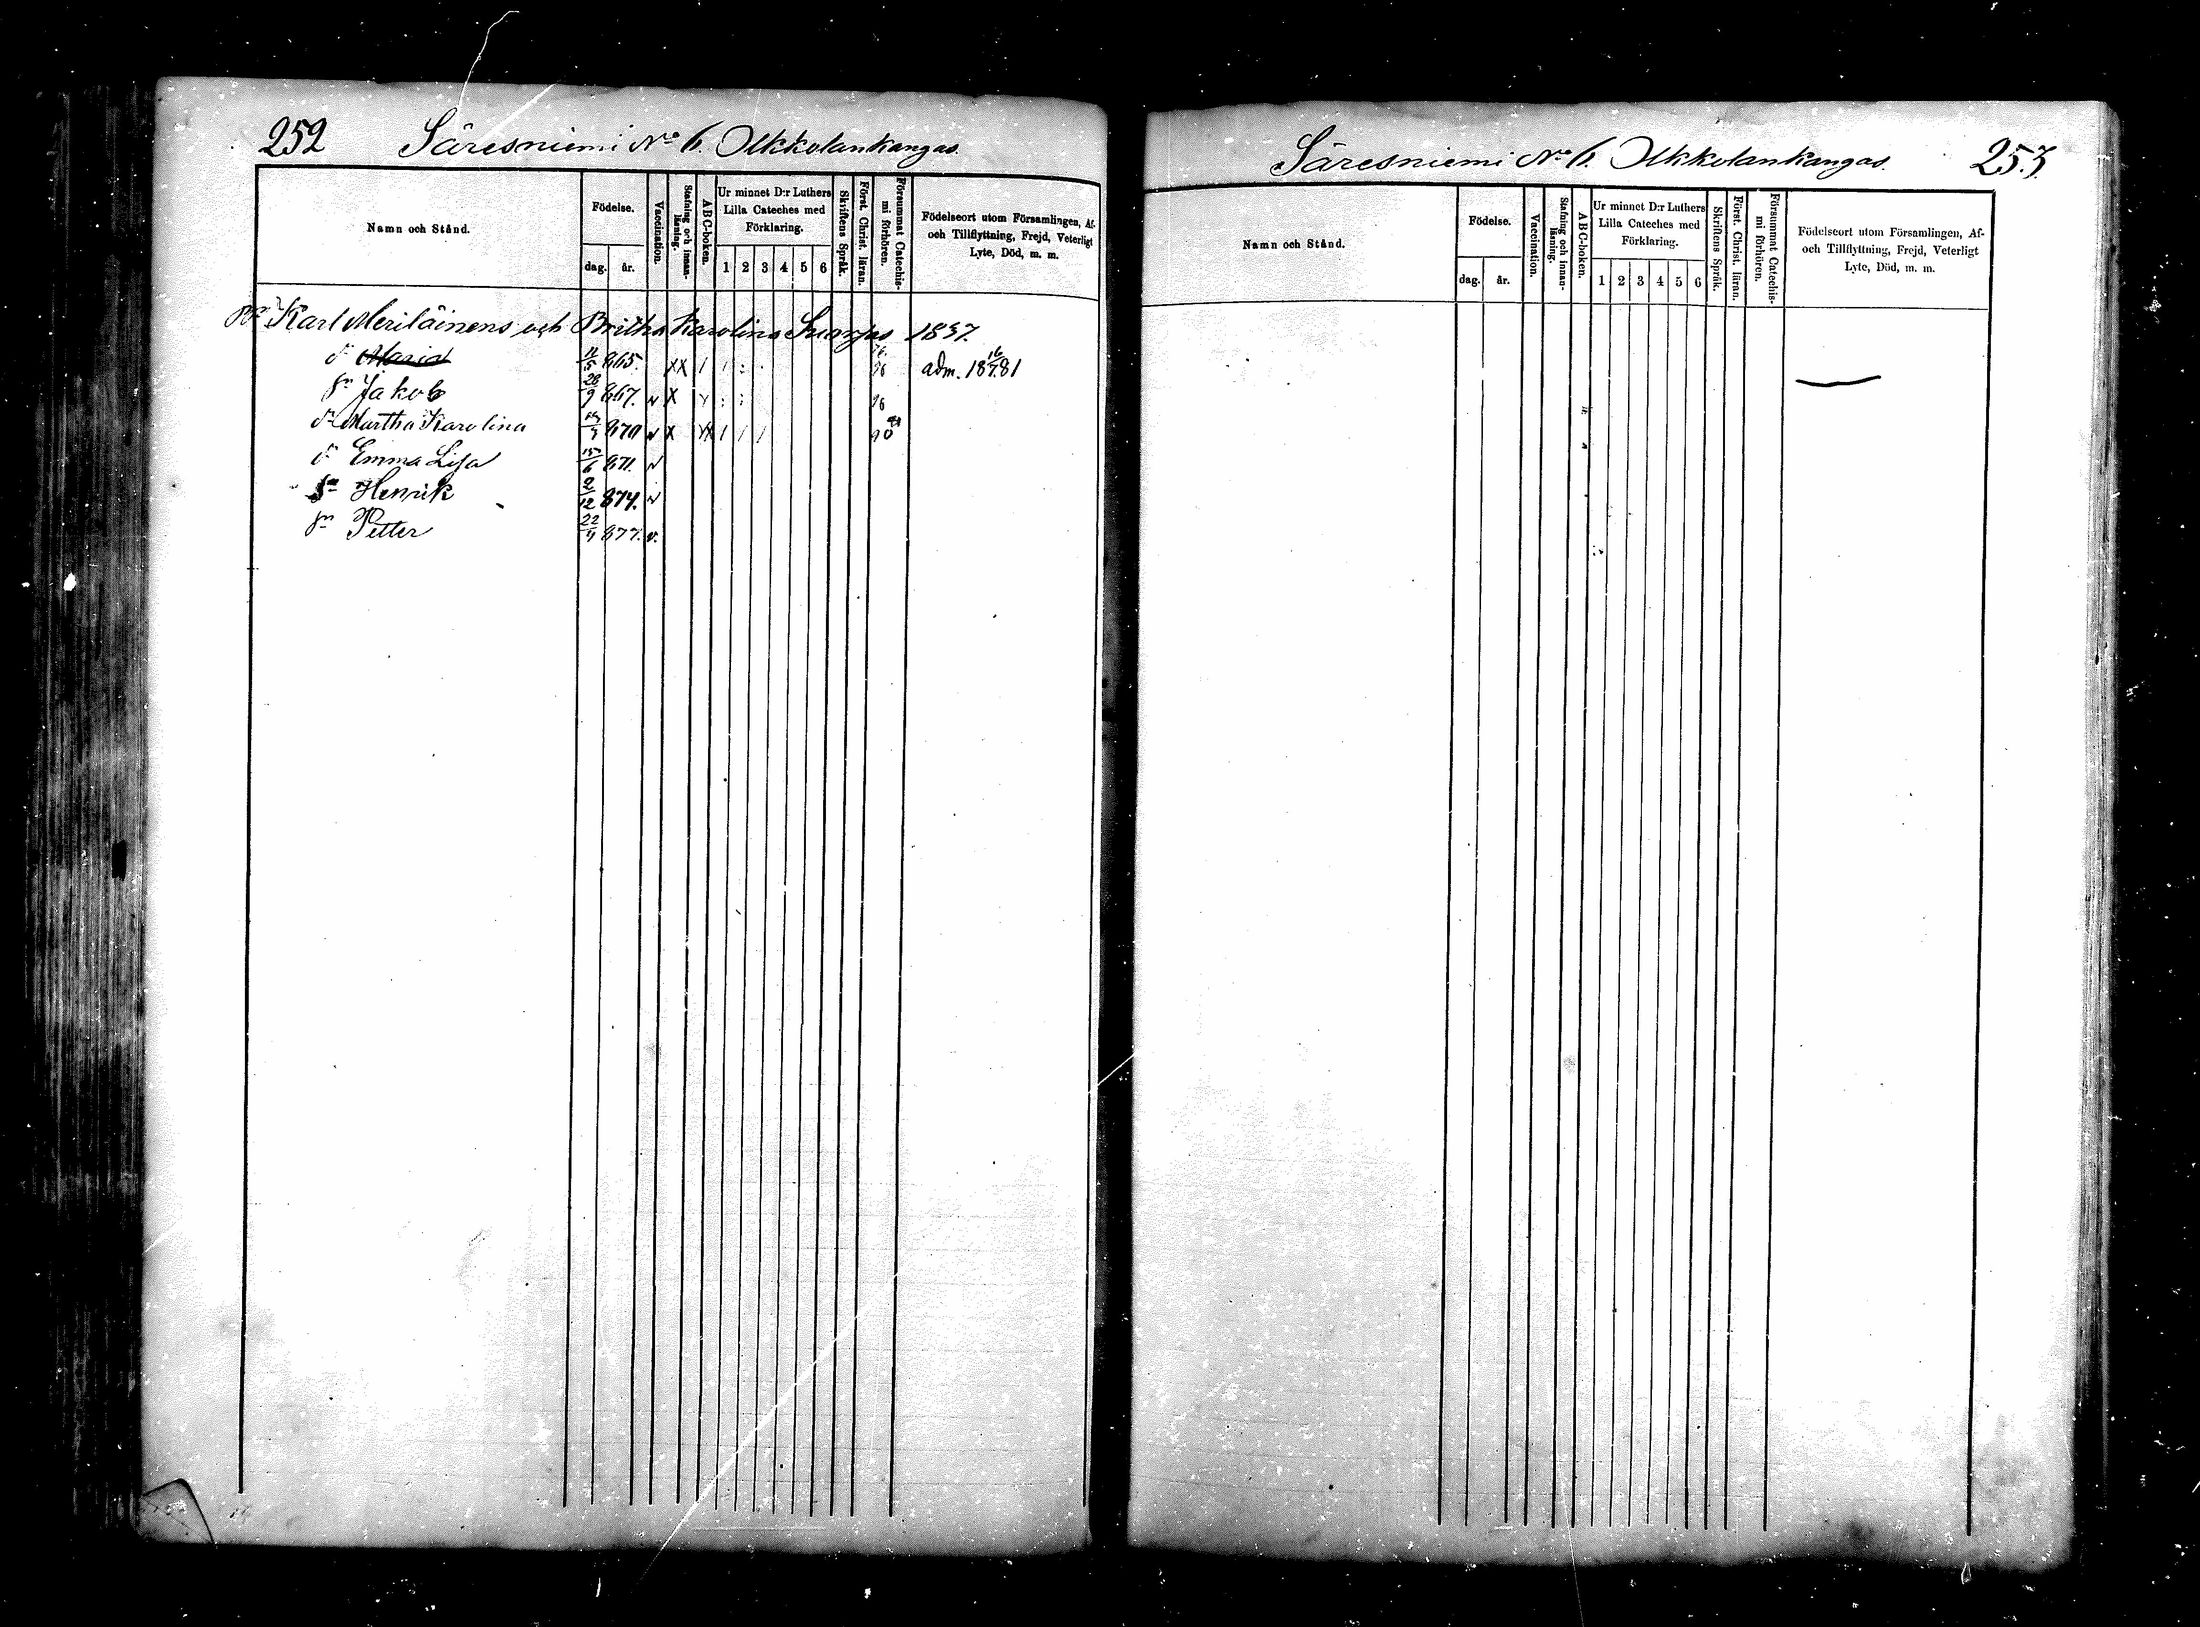 252 Säresniemi No 6. Ukkolankangas.
Namn och Stånd.
Födelse.
dag. år.
Vaccination.
Stafning och innanläsning.
ABC-boken.
Ur minnet D:r Luthers
Lilla Cateches med
Förklaring.
1 2 3 4 5 6
Skriftens Språk.
Först. Christ. läran.
Försummat Catechismi förhören.
Födelseort utom Församlingen, Af-
och Tillflyttning, Frejd, Veterligt
Lyte, Död, m. m.
Karl Meriläinens och Britha Karolina 1837.
dr Maria 11/5 865. XX / / adm. 18 16/7 81
sn Jakob 28/9 867. v X
dr Martha Karolina 870 v X
dr Emma Lisa 15/6 871. v
sn Henrik 2/12 874. v
sn Petter 22/9 877. v.
Säresniemi No 6. Ukkolankangas. 253.
Namn och Stånd.
Födelse.
dag. år.
Vaccination.
Stafning och innanläsning.
ABC-boken.
Ur minnet D:r Luthers
Lilla Cateches med
Förklaring.
1 2 3 4 5 6
Skriftens Språk.
Först. Christ. läran.
Försummat Catechismi förhören.
Födelseort utom Församlingen, Af-
och Tillflyttning, Frejd, Veterligt
Lyte, Död, m. m.